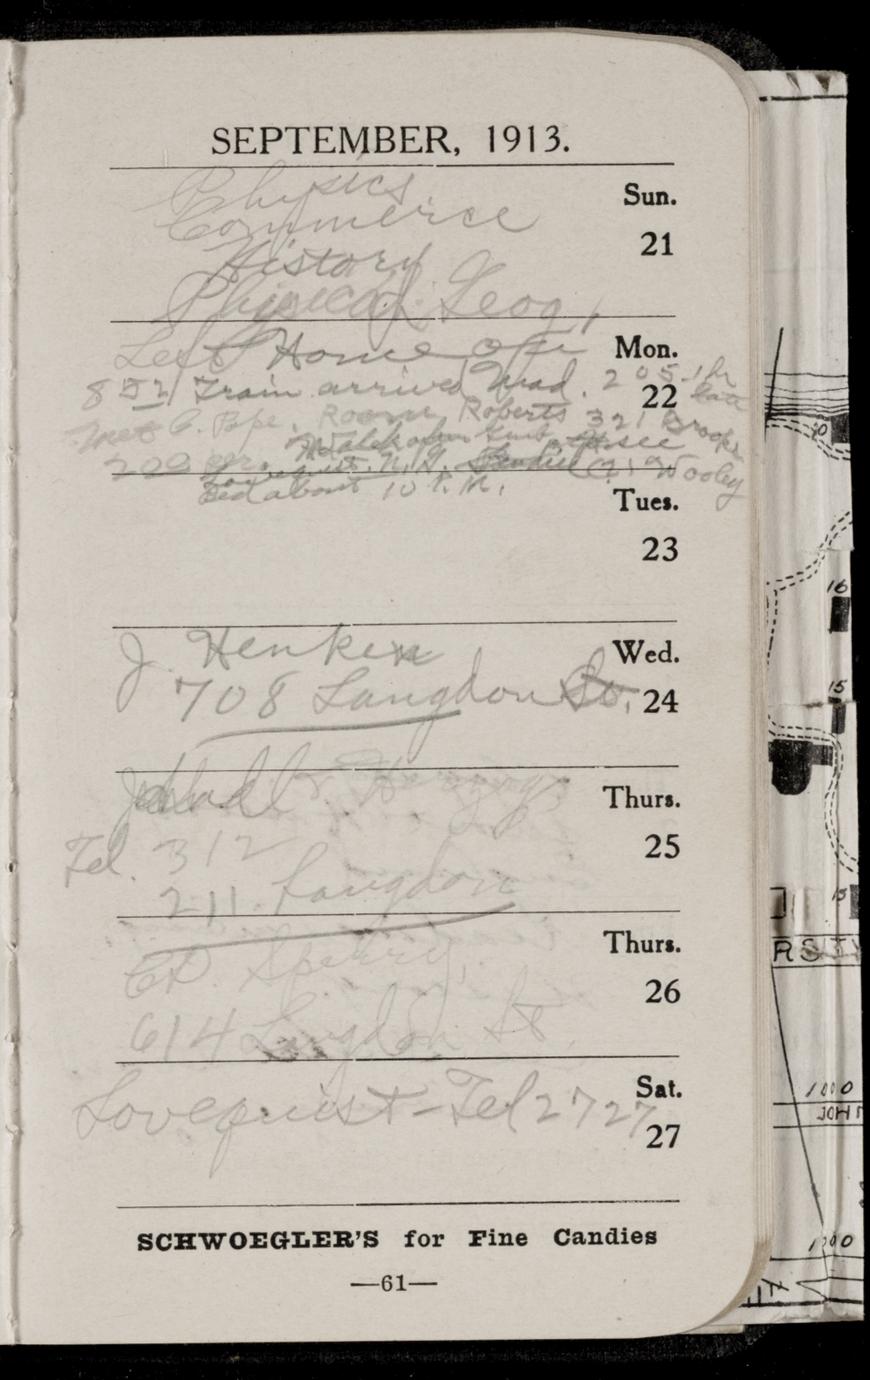 SEPTEMBER, 1913.
Physics
Sun.
Commerce
21
History
Physical Geog.
Left Home on
Mon.
22
8 52 Train arrived Mad. 2 05 1 hr late
Met C. Pope. Room Roberts 321 Brooks
Bed about 10 P.M.
Wooley
Tues.
23
J. Henken
Wed.
708 Langdon St.
24
Thurs.
Tel. 312
25
211 Langdon
Thurs.
Sperry,
26
614 Langdon St.
Sat.
Lovequist - Tel 2727
27
SCHWOEGLER'S for Fine Candies
—61—
16
15
13
RSIT
1000
JOHN
1000